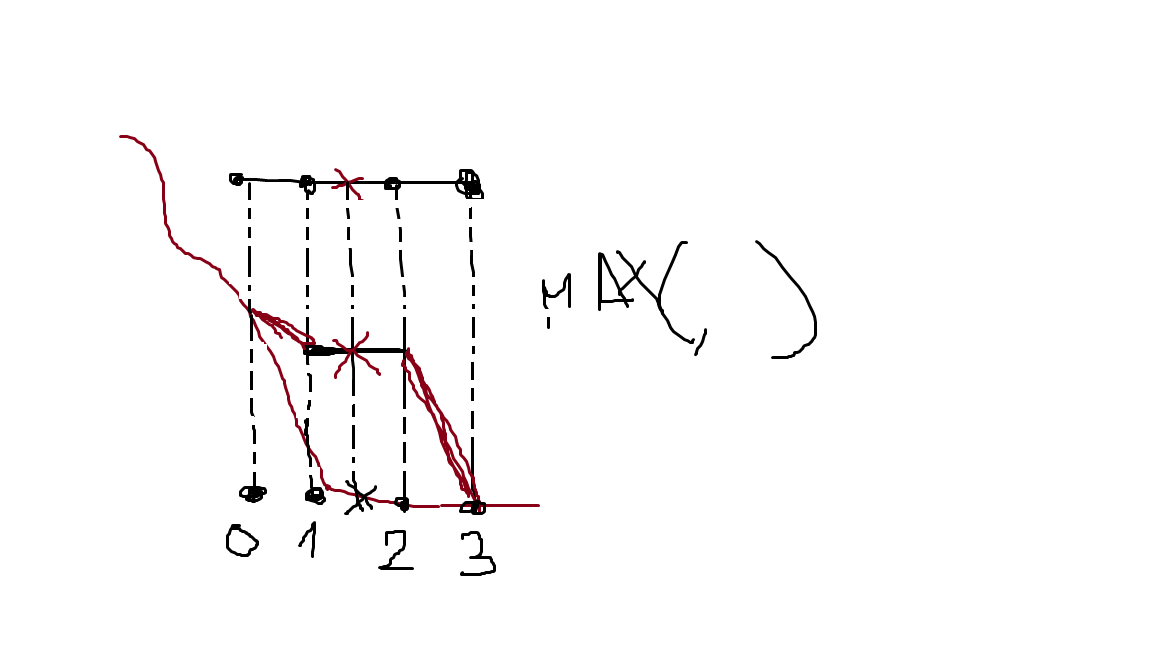 MAX( , )
0 1 2 3